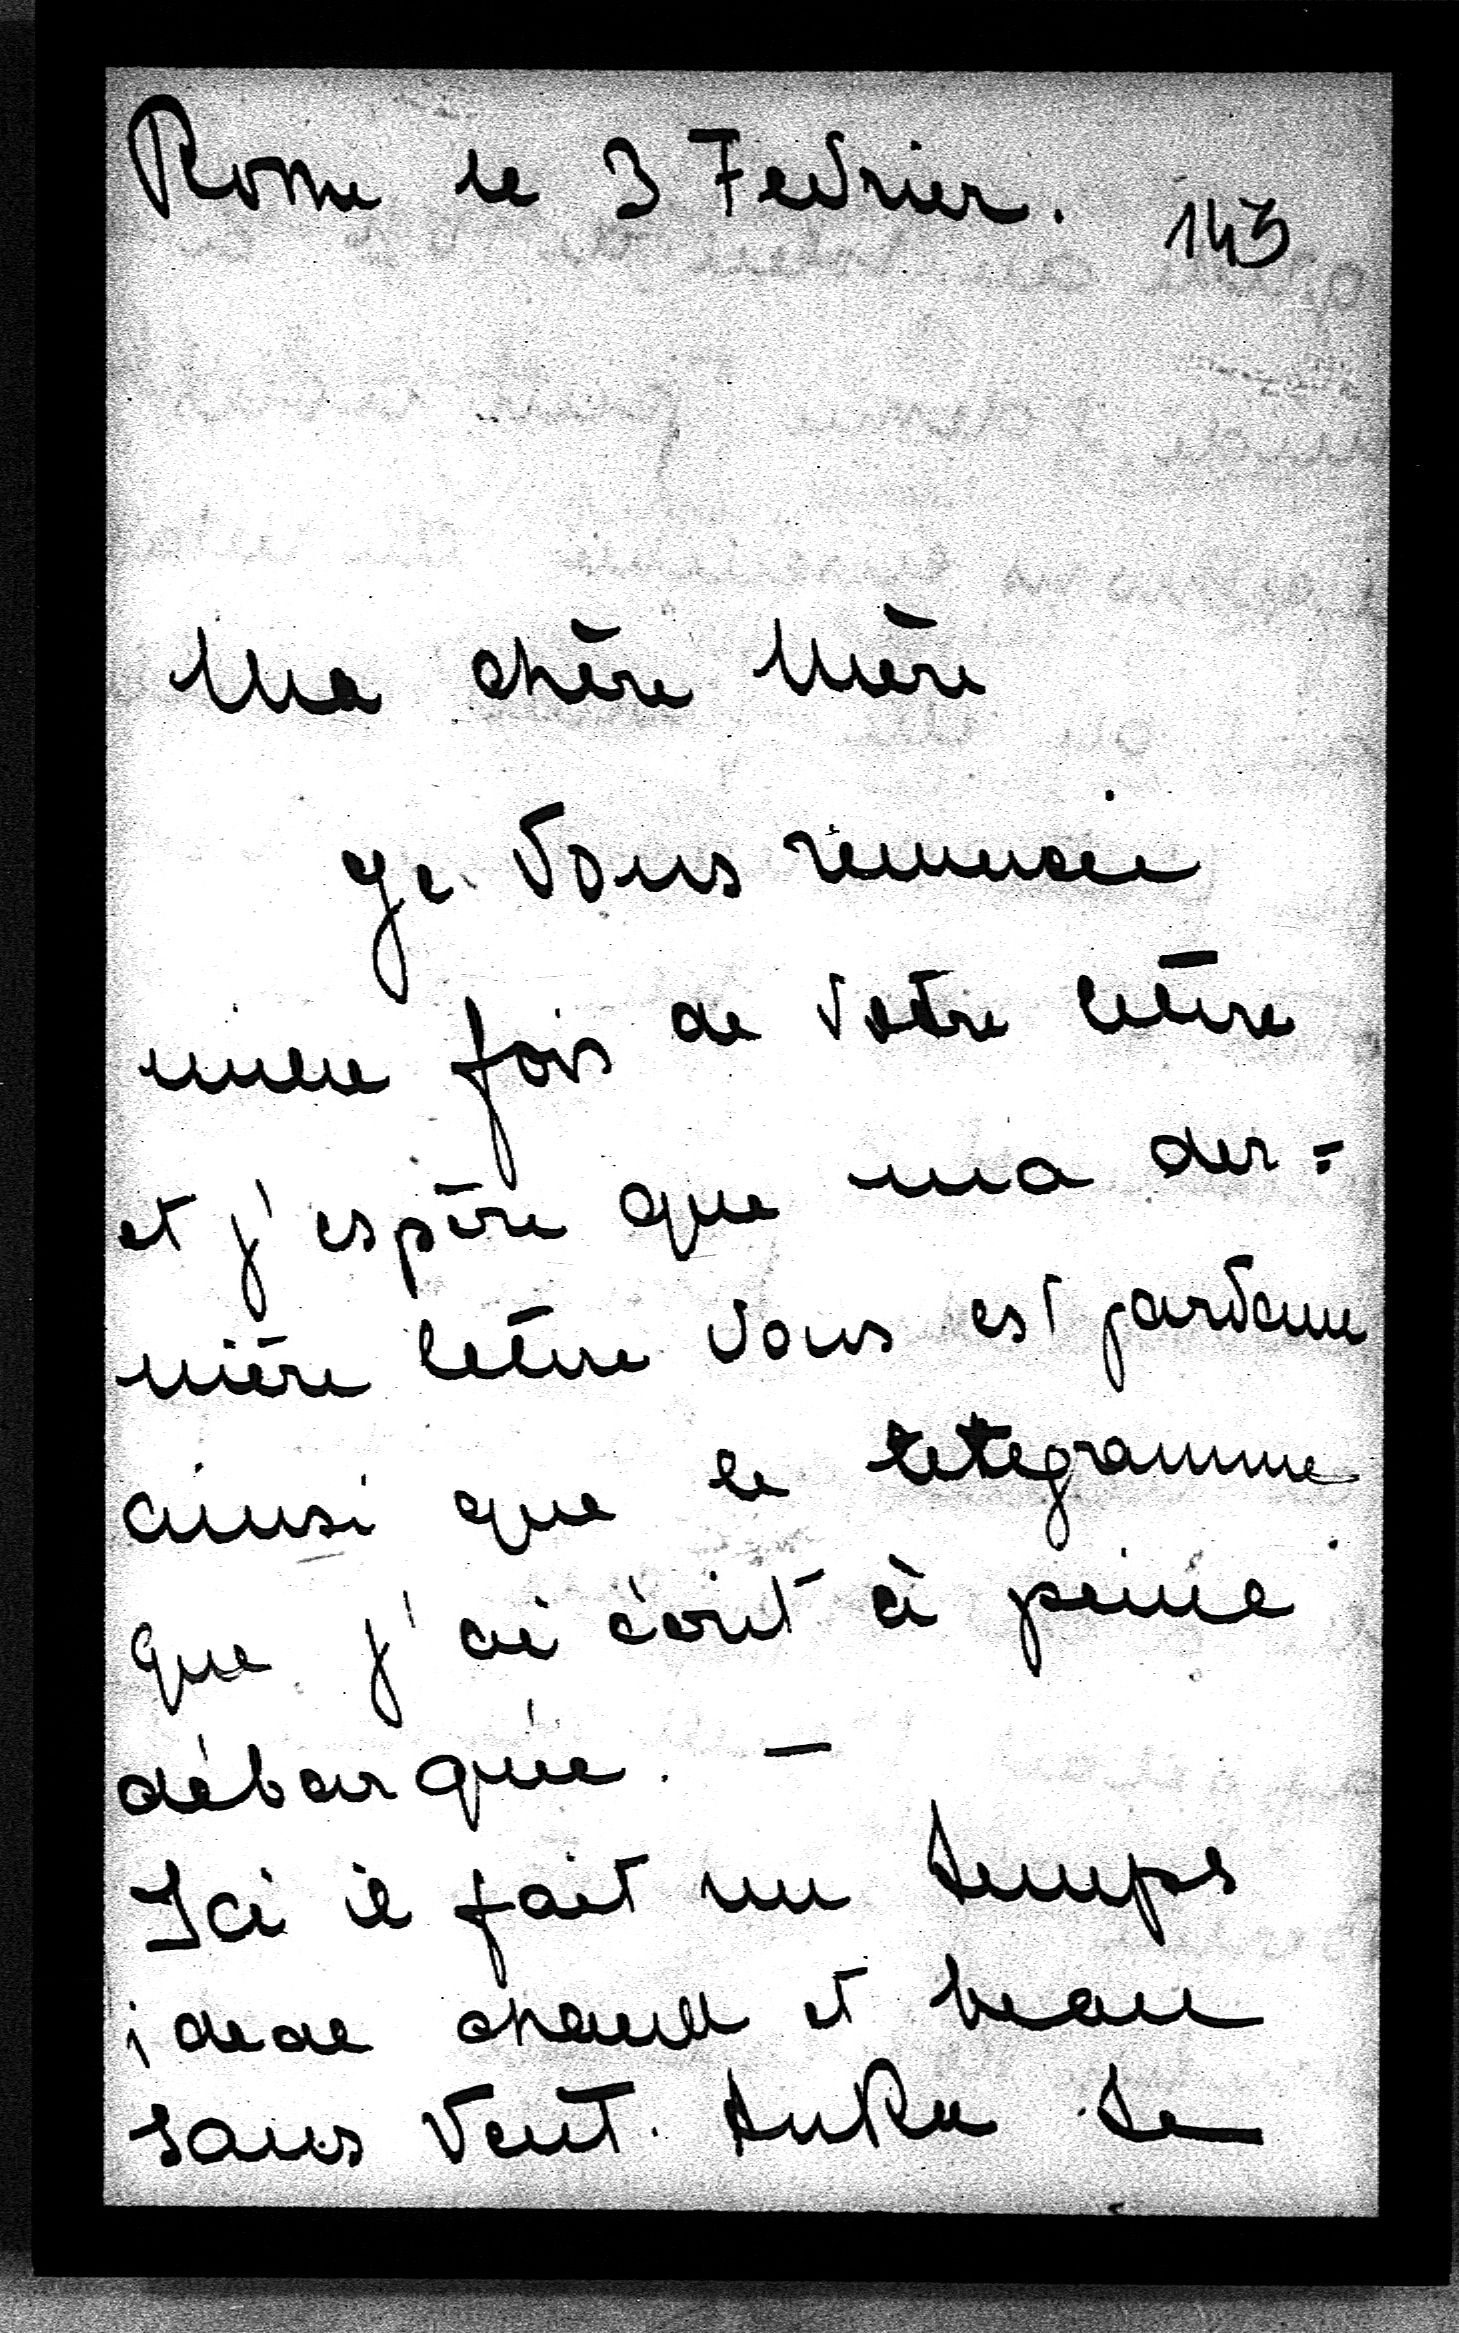 Rome le 3 Fevrier.
143
Ma chère Mère
Je Vous remercie
mille fois de Votre lettre
et j'espère que ma der=
nière lettre Vous est parvenu
ainsi que le telegramme
que j'ai écrit à peine
débarquée. —
Ici il fait un temps
ideal chaud et beau
sans Vent. Se